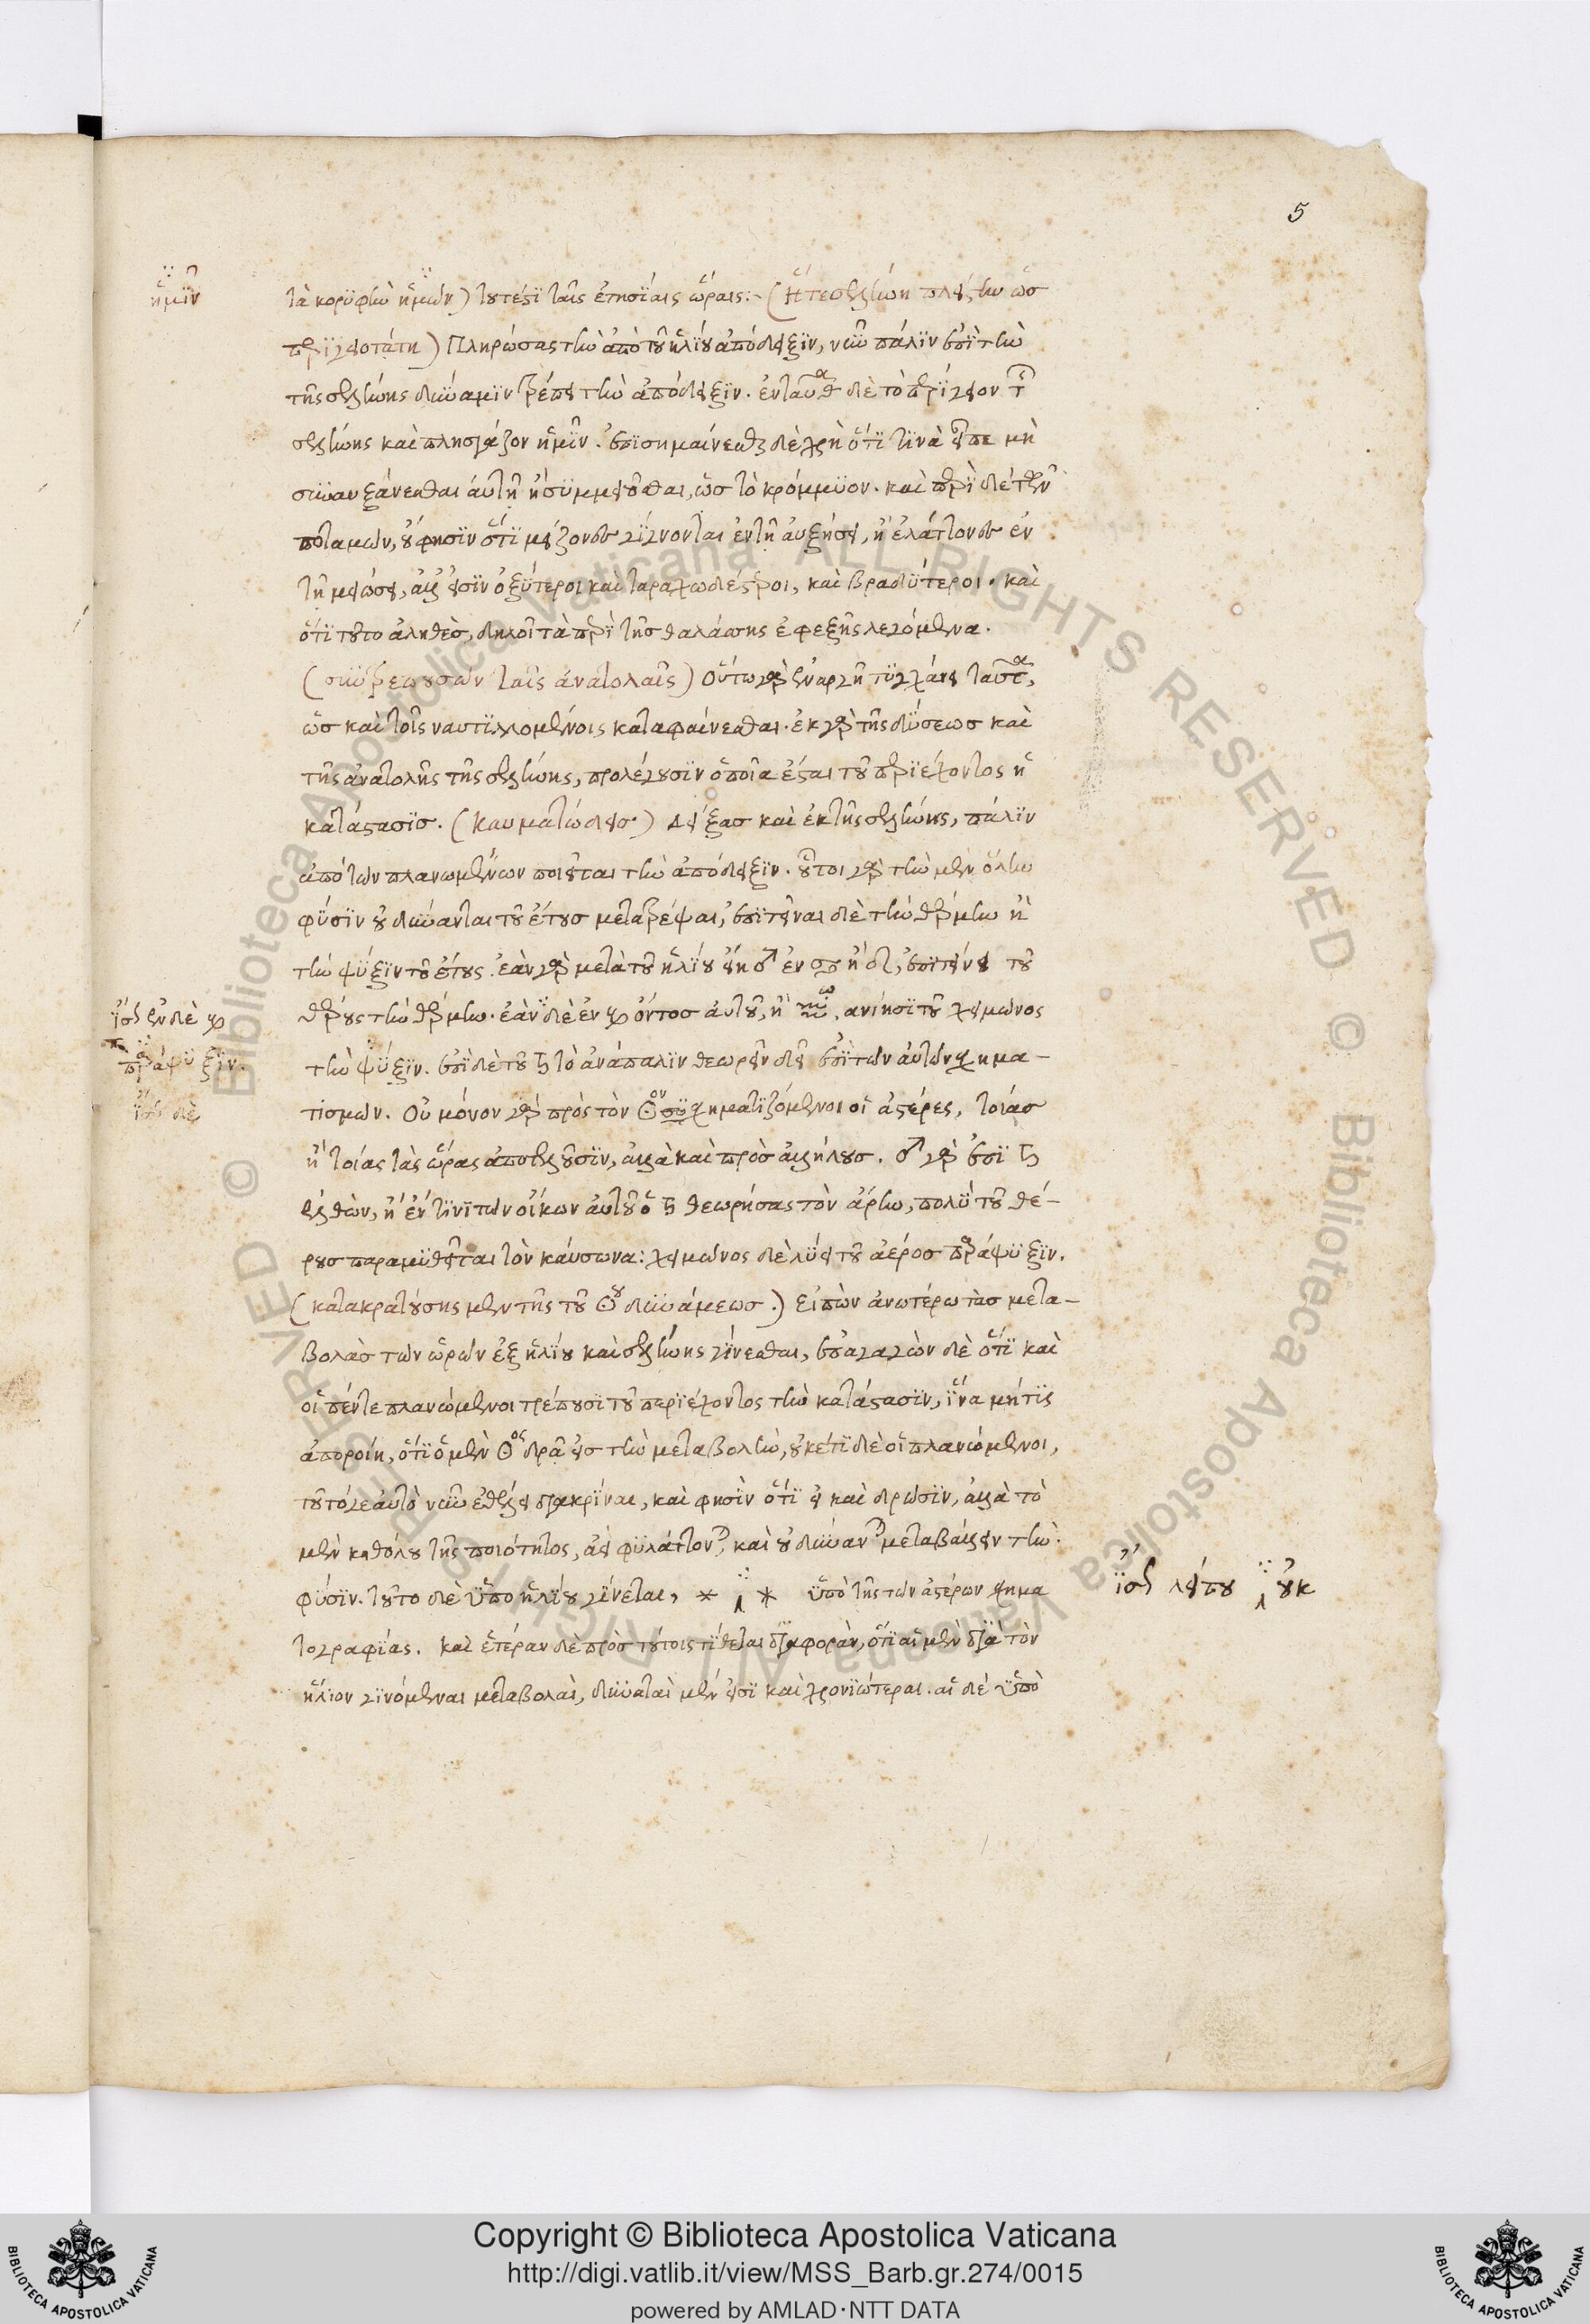 5
ἡμῖν
τὰ κορϋφὴν ἡμῶν) τουτέστϊ ταῖς ἐτησΐαις ὥραις:- (Ἥ τε σελήνη πλείστην ὡσ
περϊγειοτάτη) Πληρώσας τὴν ἀπὸ τοῦ ἡλΐου ἀπόδειξϊν, νῦν πάλϊν ἐπὶ τὴν
τῆς σελήνης δύναμϊν τρέπει τὴν ἀπόδειξϊν. ἐνταῦθα δὲ τὸ περΐγειον τῆς
σελήνης καὶ πλησιάζον ἡμῖν. ἐπϊσημαίνεσθαι δὲ χρὴ ὅτϊ τϊνὰ εἶπε μὴ
συναυξάνεσθαι αὐτῇ ἢ συμμειοῦσθαι, ὡσ τὸ κρόμμϋον. καὶ περὶ δὲ τῶν
ποταμῶν, οὔ φησϊν ὅτϊ μείζονεσ γΐγνονται ἐν τῇ αὐξήσει, ἢ ἐλάττονεσ ἐν
τῇ μειώσει, ἀλλ' εἰσϊν ὀξύτεροι καὶ ταραχωδέστεροι, καὶ βραδύτεροι. καὶ
ὅτϊ τοῦτο ἀληθὲσ, δηλοῖ τὰ περὶ τῆσ θαλάσσης ἐφεξῆς λεγόμενα.
(συῤῥεουσῶν ταῖς ἀνατολαῖς) Οὕτω γὰρ ἐναργῆ τϋγχάνει ταῦτα,
ὡσ καὶ τοῖς ναυτϊλλομένοις καταφαίνεσθαι. ἐκ γὰρ τῆς δύσεωσ καὶ
τῆς ἀνατολῆς τῆς σελήνης, προλέγουσϊν ὁποῖα ἔσται τοῦ περϊέχοντος ἡ
κατάστασϊσ. (καυματώδεισ) Δείξασ καὶ ἐκ τῆς σελήνης, πάλϊν
ἀπὸ τῶν πλανωμένων ποιεῖται τὴν ἀπόδειξϊν. οὗτοι γὰρ τὴν μὲν ὅλην
φύσϊν οὐ δύνανται τοῦ ἔτουσ μετατρέψαι, ἐπϊτεῖναι δὲ τὴν θέρμην ἢ
τὴν ψύξϊν τοῦ ἔτους. ἐὰν γὰρ μετὰ τοῦ ἡλΐου εἴη ♂ ἐν ♋ ἢ ♌, ἐπϊτείνει τοῦ
θέρους τὴν θέρμην. ἐὰν δὲ ἐν ♑ ὄντοσ αὐτοῦ, ἢ ♒, ἀνίησϊ τοῦ χειμῶνος
τὴν ψύξϊν. ἐπὶ δὲ τοῦ ♄ τὸ ἀνάπαλϊν θεωρεῖν δεῖ ἐπὶ τῶν αὐτῶν σχημα-
τισμῶν. Οὐ μόνον γὰρ πρὸς τὸν ☉ον συσχηματϊζόμενοι οἱ ἀστέρες, τοίασ
ἢ τοίας τὰς ὥρας ἀποτελοῦσϊν, ἀλλὰ καὶ πρὸσ ἀλλήλουσ. ♂ γὰρ ἐπὶ ♄
ἐλθὼν, ἢ ἔν τϊνϊ τῶν οἴκων αὐτοῦ ὁ ♄ θεωρήσας τὸν ἄρην, πολὺ τοῦ θέ-
ρουσ παραμϋθεῖται τὸν καύσωνα: χειμῶνος δὲ λύει τοῦ ἀέροσ παράψϋξϊν.
(κατακρατούσης μὲν τῆς τοῦ ☉ου δυνάμεωσ.) Εἰπὼν ἀνωτέρω τὰσ μετα-
βολὰσ τῶν ὡρῶν ἐξ ἡλΐου καὶ σελήνης γΐνεσθαι, ἐπαγαγὼν δὲ ὅτϊ καὶ
οἱ πέντε πλανώμενοι τρέπουσϊ τοῦ περϊέχοντος τὴν κατάστασϊν, ἵνα μή τϊς
ἀποροίη, ὅτϊ ὁ μὲν ☉ος δρᾷ εἰσ τὴν μεταβολὴν, οὐκέτϊ δὲ οἱ πλανώμενοι,
τοῦτό γε αὐτὸ νῦν ἐθέλει διακρῖναι, καὶ φησὶν ὅτϊ εἰ καὶ δρῶσϊν, ἀλλὰ τὸ
μὲν καθόλου τῆς ποιότητος, ἀεὶ φϋλάττονται, καὶ οὐ δύνανται μεταβάλλειν τὴν
φύσϊν. τοῦτο δὲ ὑπὸ ἡλΐου γΐνεται, * * ὑπὸ τῆς τῶν ἀστέρων σχημα
τογραφΐας. καὶ ἑτέραν δὲ πρὸσ τούτοις τΐθεται διαφορὰν, ὅτϊ αἱ μὲν διὰ τὸν
ἥλϊον γϊνόμεναι μεταβολαὶ, δυναταὶ μέν εἰσϊ καὶ χρονϊώτεραι. αἱ δὲ ὑπὸ
ἴσως ἐν δὲ ♑
παράψϋξϊν.
ἴσως δὲ
ἴσως λείπει οὐκ
Copyright © Biblioteca Apostolica Vaticana
http://digi.vatlib.it/view/MSS_Barb.gr.274/0015
powered by AMLAD·NTT DATA